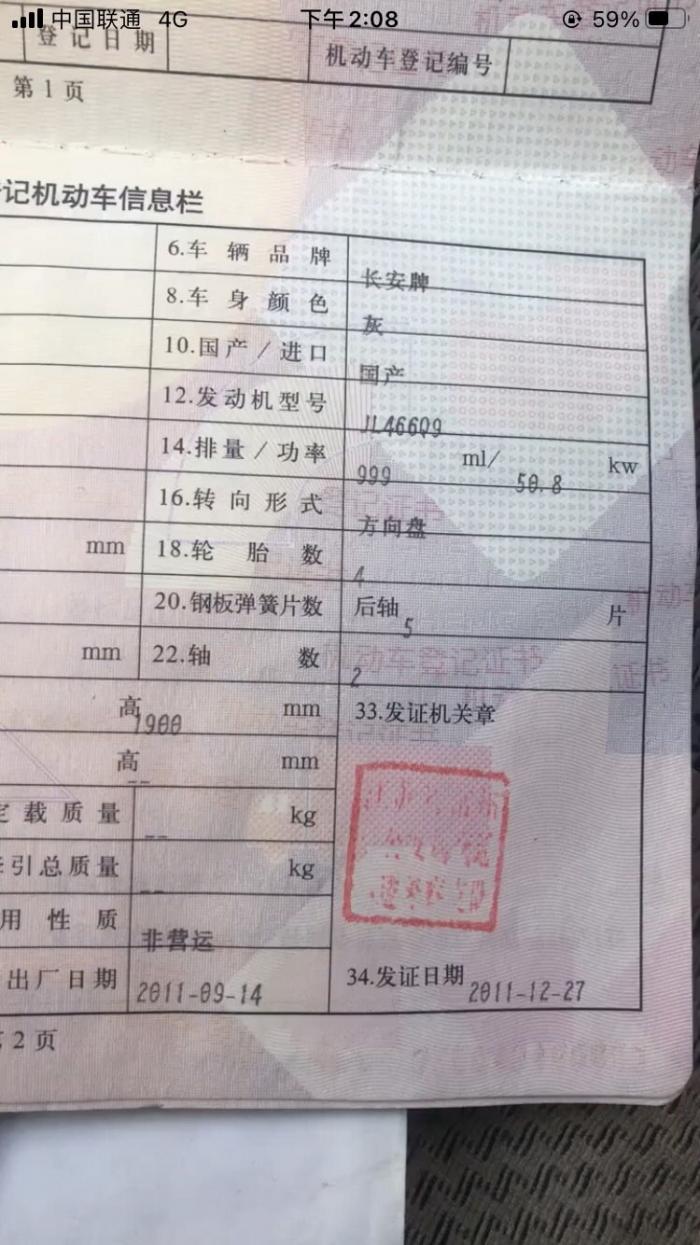 中国联通 4G 下午2:08 59%
登记日期 机动车登记编号
第1页
记机动车信息栏
6.车辆品牌 长安牌
8.车身颜色 灰
10.国产/进口 国产
12.发动机型号 JL466Q9
14.排量/功率 999 ml/ 50.8 kw
16.转向形式 方向盘
mm 18.轮胎数 4
20.钢板弹簧片数 后轴 5 片
mm 22.轴数 2
高 1900 mm 33.发证机关章
高 -- mm
载质量 -- kg
引总质量 -- kg
用性质 非营运
出厂日期 2011-09-14 34.发证日期 2011-12-27
2页
机动车登记证书
证书